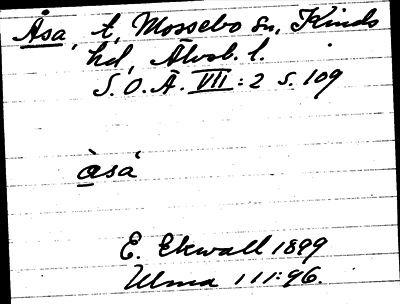 Åsa, t, Mossebo sn, Kinds
hd, Älvsb. l.
S. O. Ä. VII: 2 s. 109
àsá
E. Ekwall 1899
Ulma 111:96.